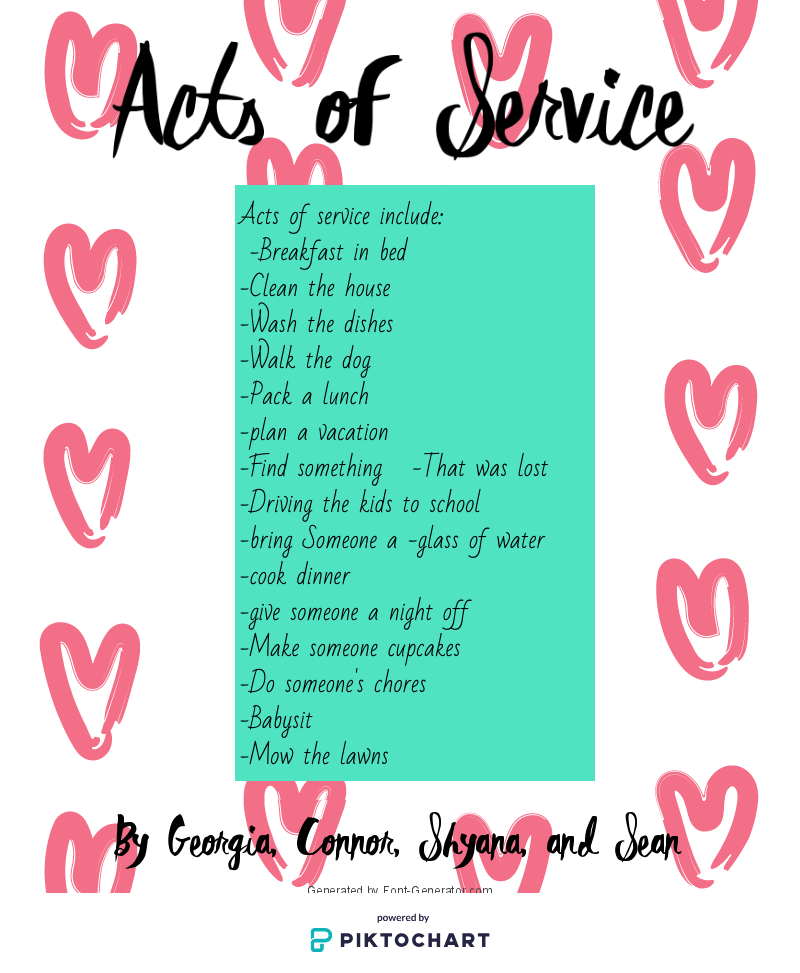 Acts of Service
Acts of service include:
-Breakfast in bed
-Clean the house
-Wash the dishes
-Walk the dog
-Pack a lunch
-plan a vacation
-Find something -That was lost
-Driving the kids to school
-bring Someone a -glass of water
-cook dinner
-give someone a night off
-Make someone cupcakes
-Do someone's chores
-Babysit
-Mow the lawns
By Georgia, Connor, Shyana, and Sean
Generated by Font-Generator.com
powered by
PIKTOCHART